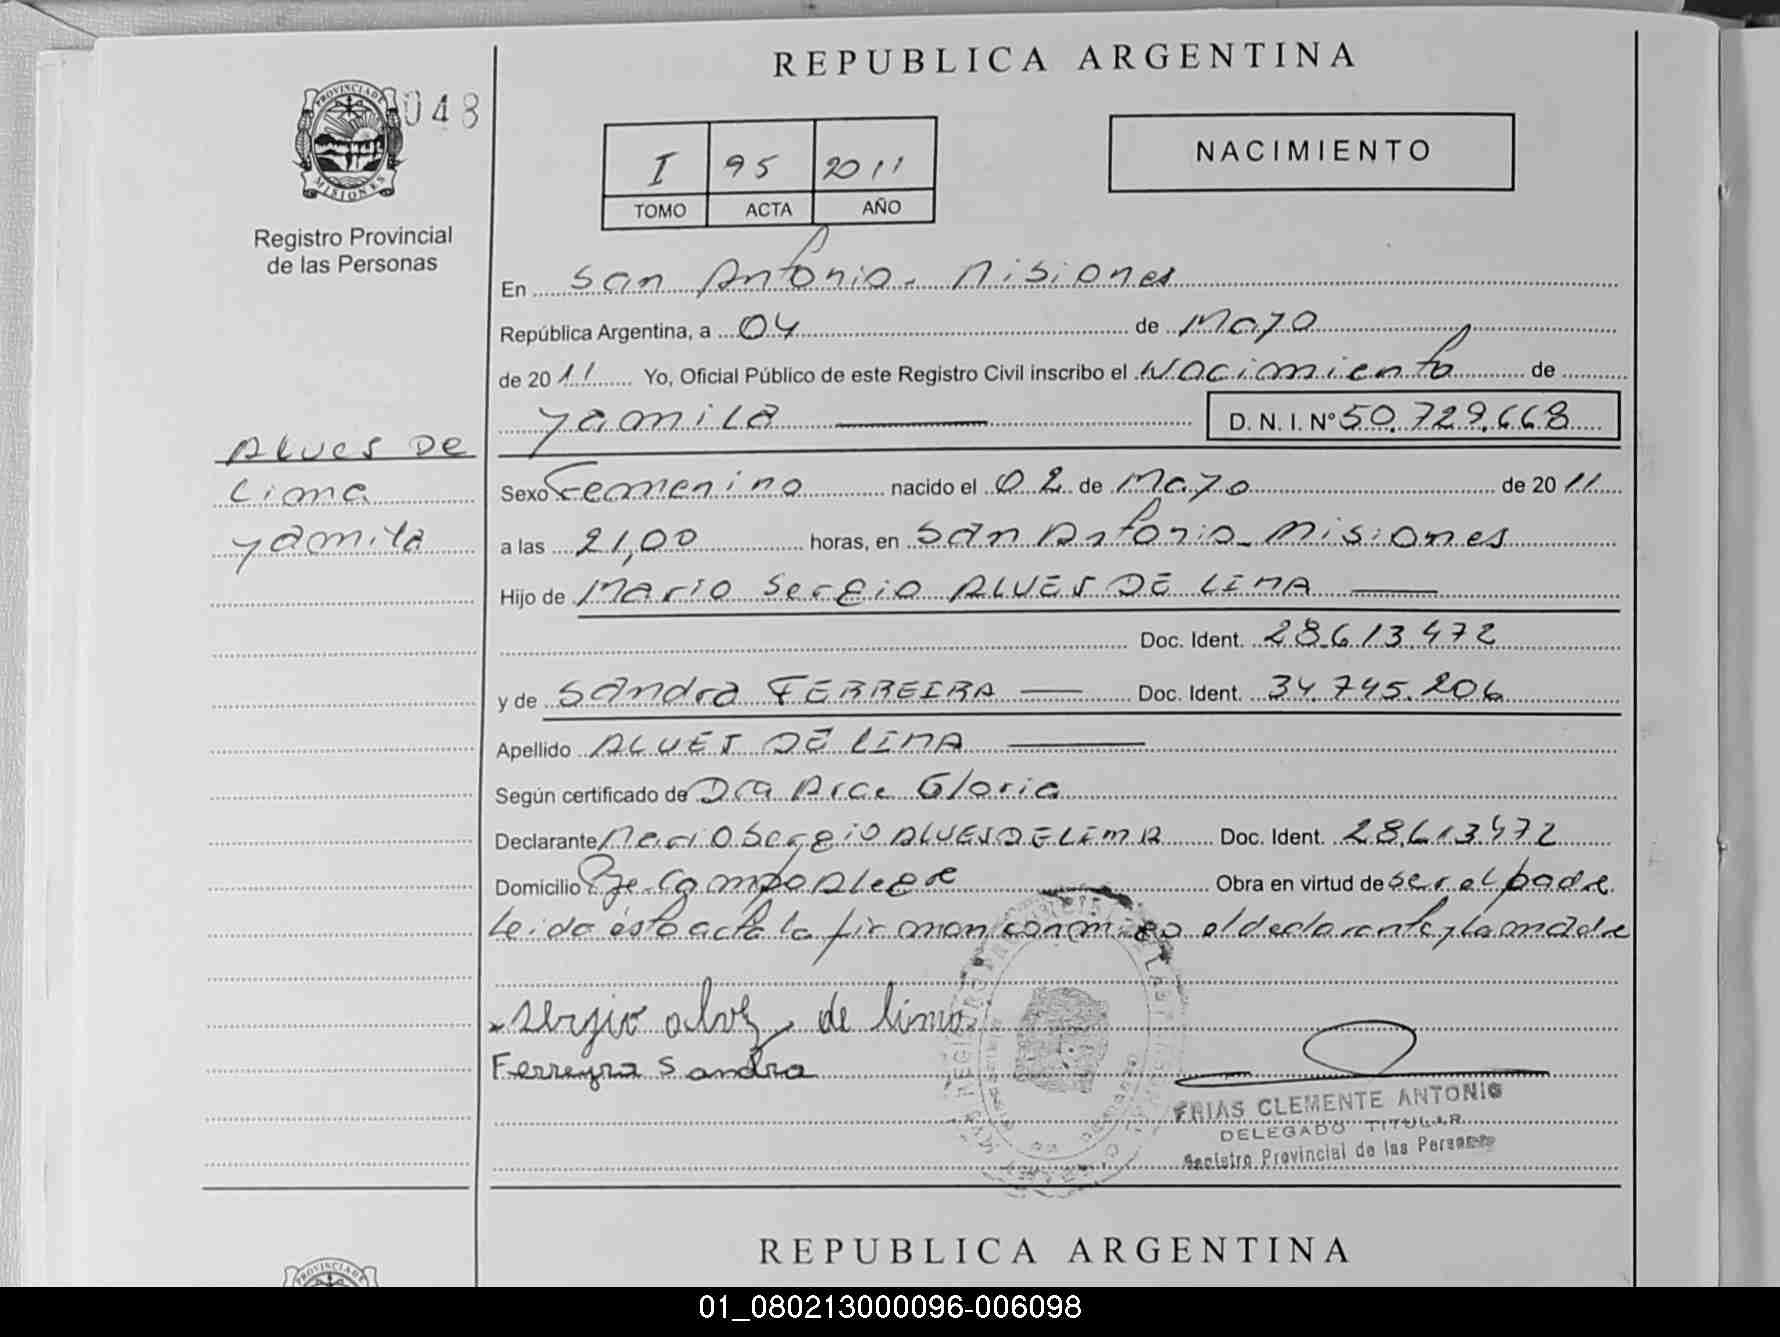 REPUBLICA ARGENTINA
PROVINCIA DE MISIONES
048
Registro Provincial
de las Personas
I 95 2011
TOMO ACTA AÑO
NACIMIENTO
En San Antonio. Misiones
República Argentina, a 04 de Mayo
de 2011 Yo, Oficial Público de este Registro Civil inscribo el Nacimiento de
Yamila D. N. I. Nº 50.729.668
Alves De
Lima
Yamila
Sexo Femenino nacido el 02 de Mayo de 2011
a las 21,00 horas, en San Antonio - Misiones
Hijo de Mario Sergio ALVES DE LIMA
Doc. Ident. 28.613.472
y de Sandra FERREIRA Doc. Ident. 34.745.206
Apellido ALVES DE LIMA
Según certificado de Dra Arce Gloria
Declarante Mario Sergio ALVES DE LIMA Doc. Ident. 28.613.472
Domicilio Pje. Campo Alegre Obra en virtud de ser el padre
Leida ésta acta la firman conmigo el declarante y la madre
Sergio alvez de lima
Ferreyra Sandra
FRIAS CLEMENTE ANTONIO
DELEGADO TITULAR
Registro Provincial de las Personas
REPUBLICA ARGENTINA
PROVINCIA DE
01_080213000096-006098